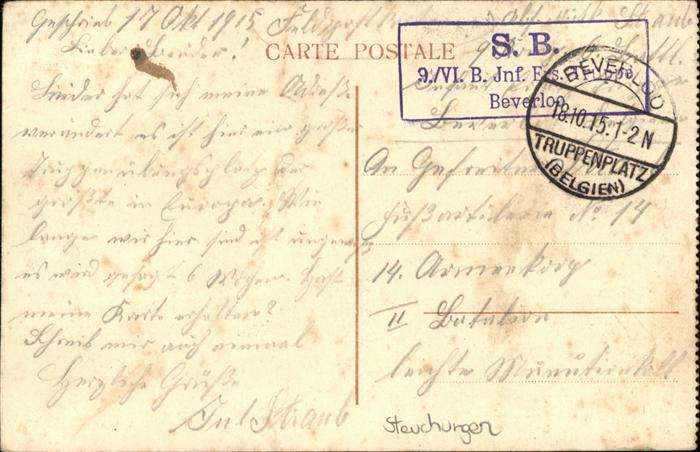 Geschrieb 17 Okt 1915 Feldpost
Lieber Bruder!
CARTE POSTALE
S. B.
9./VI. B. Jnf. Ers. Truppe
Beverloo
BEVERLOO
18.10.15.1-2N
TRUPPENPLATZ
(BELGIEN)
Leider hat sich meine Adresse
verändert es ist hier ein großer
Truppenübungsplatz der
größte in Europa. Wie
lange wir hier sind ist ungewiß
es wird gesagt 6 Wochen. Hast
meine Karte erhalten?
Schreib mir auch einmal
Herzliche Grüße
Jul Straub
An Gefreiter
Fußartillerie No 14
14. Armeekorp
II Batalion
leichte Munitionkoll
steuchurgen